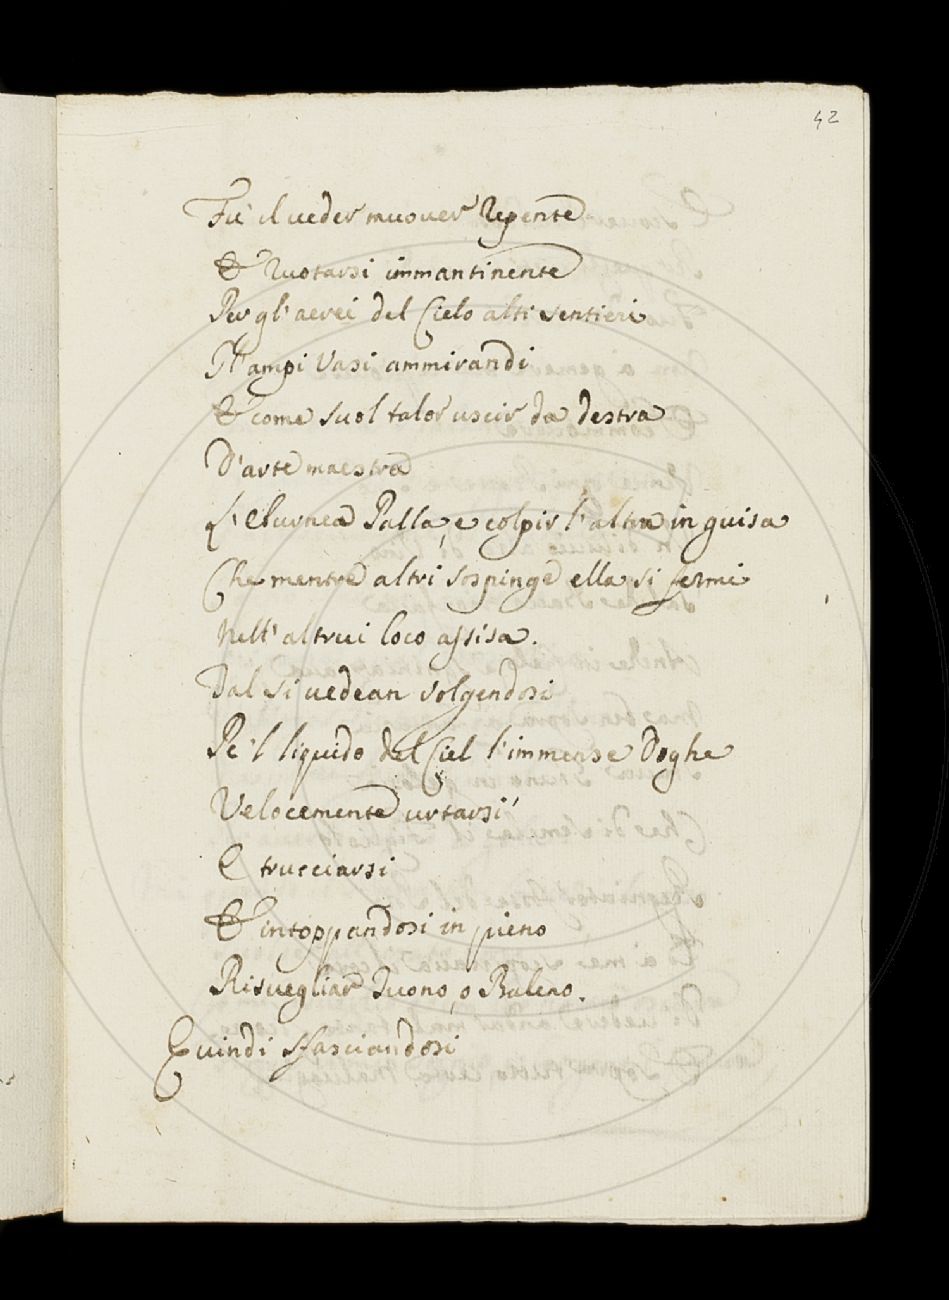 42
Fù il ueder muouer repente
E ruotarsi immantinente
Per gl'aerei del Cielo alti sentieri
Ampi Vasi ammirandi
E come suol talor uscir da destra
D'arte maestra
L'eburnea Palla, e colpir l'altra in guisa
Che mentre altri sospinge ella si fermi
Nell'altrui loco assisa.
Tal si uedean volgendosi
Pe'l liquido del Ciel l'immense Doghe
Velocemente urtarsi
E trucciarsi
E intoppandosi in pieno
Risuegliar Tuono, o Baleno.
Quindi sfasciandosi